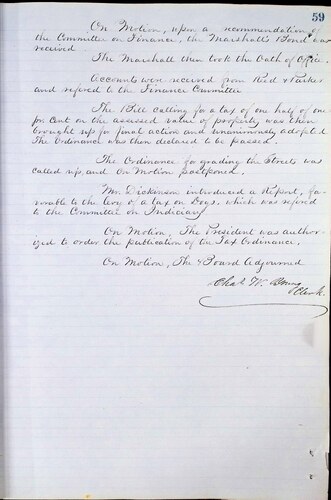 59
On Motion, upon a recommendation of
the Committee on Finance, the Marshall's Bond was
received
The Marshall then took the Oath of Office.
Accounts were received from Reid & Parker
and refered to the Finance Committee
The Bill calling for a tax of one half of one
per cent on the assessed value of property was then
brought up for final action and unanimously adopted.
The Ordinance was then declared to be passed.
The Ordinance for grading the Streets was
called up, and on Motion postponed.
Mr. Dickinson introduced a Report, fa-
vorable to the levy of a tax on Dogs. which was refered
to the Committee on Judiciary
On Motion, The President was author-
ized to order the publication of the Tax Ordinance.
On Motion, The Board Adjourned
Chas. W.
Clerk.